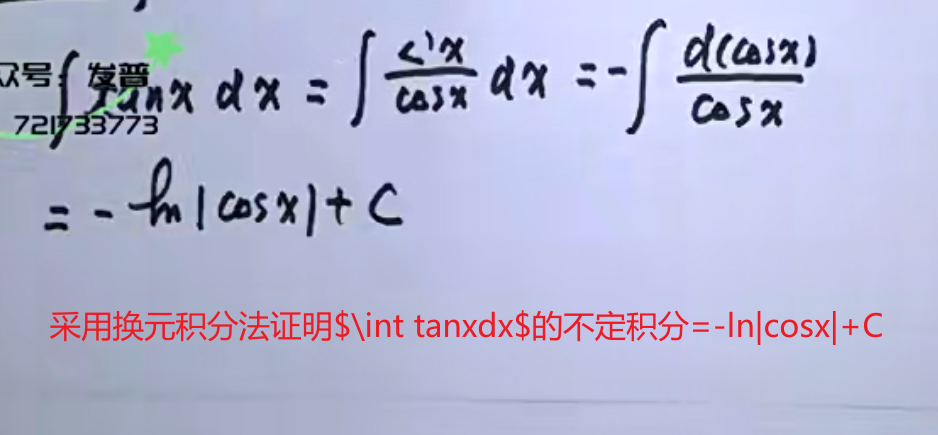 众号：发普
721733773
∫ tanx dx = ∫ x/cosx dx = -∫ d(cosx)/cosx
= -ln|cosx|+C
采用换元积分法证明$\int tanxdx$的不定积分=-ln|cosx|+C